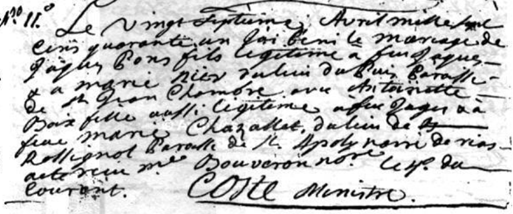 No. 11.°
Le vingt septieme Avril mille sept
cens quarante un J'ai béni le mariage de
Jaques Bons fils legitime a feu Jaques
& a marie du lieu du Paroisse
de St Jean Chambre avec Antoinette
fille aussi legitime a feu Jaques & à
feue marie Chazallet, du lieu de
Rossignol Paroisse de St Apolynaire de rias
acte reçu me Bouveron nore le du
Courant. Coste Ministre.